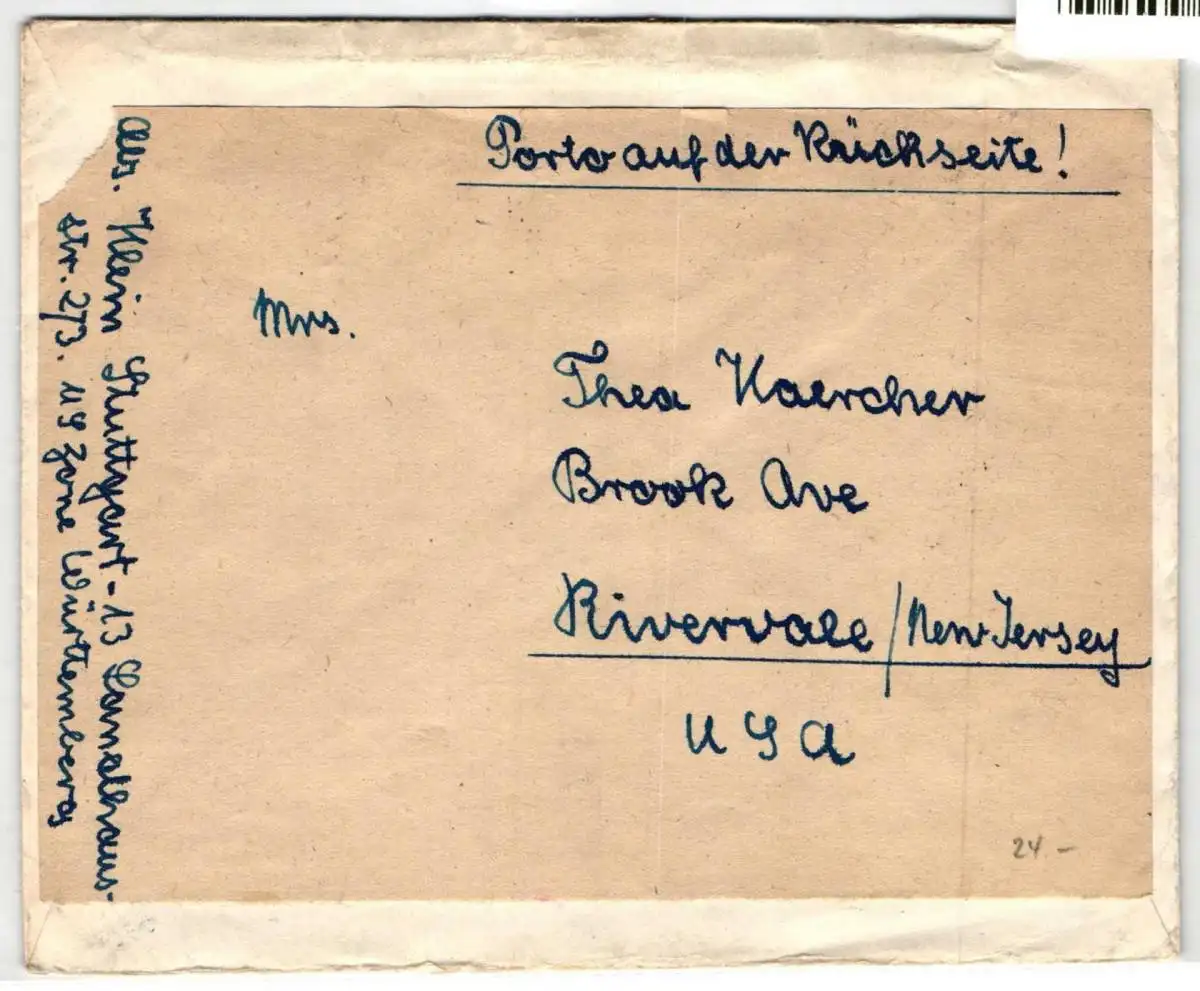 Porto auf der Rückseite!
Mrs.
Thea Kaercher
Brook Ave
Rivervale / New Jersey
USA
24.-
Abs. Klein Stuttgart-13 Landhaus-
str. 273. US Zone Württemberg